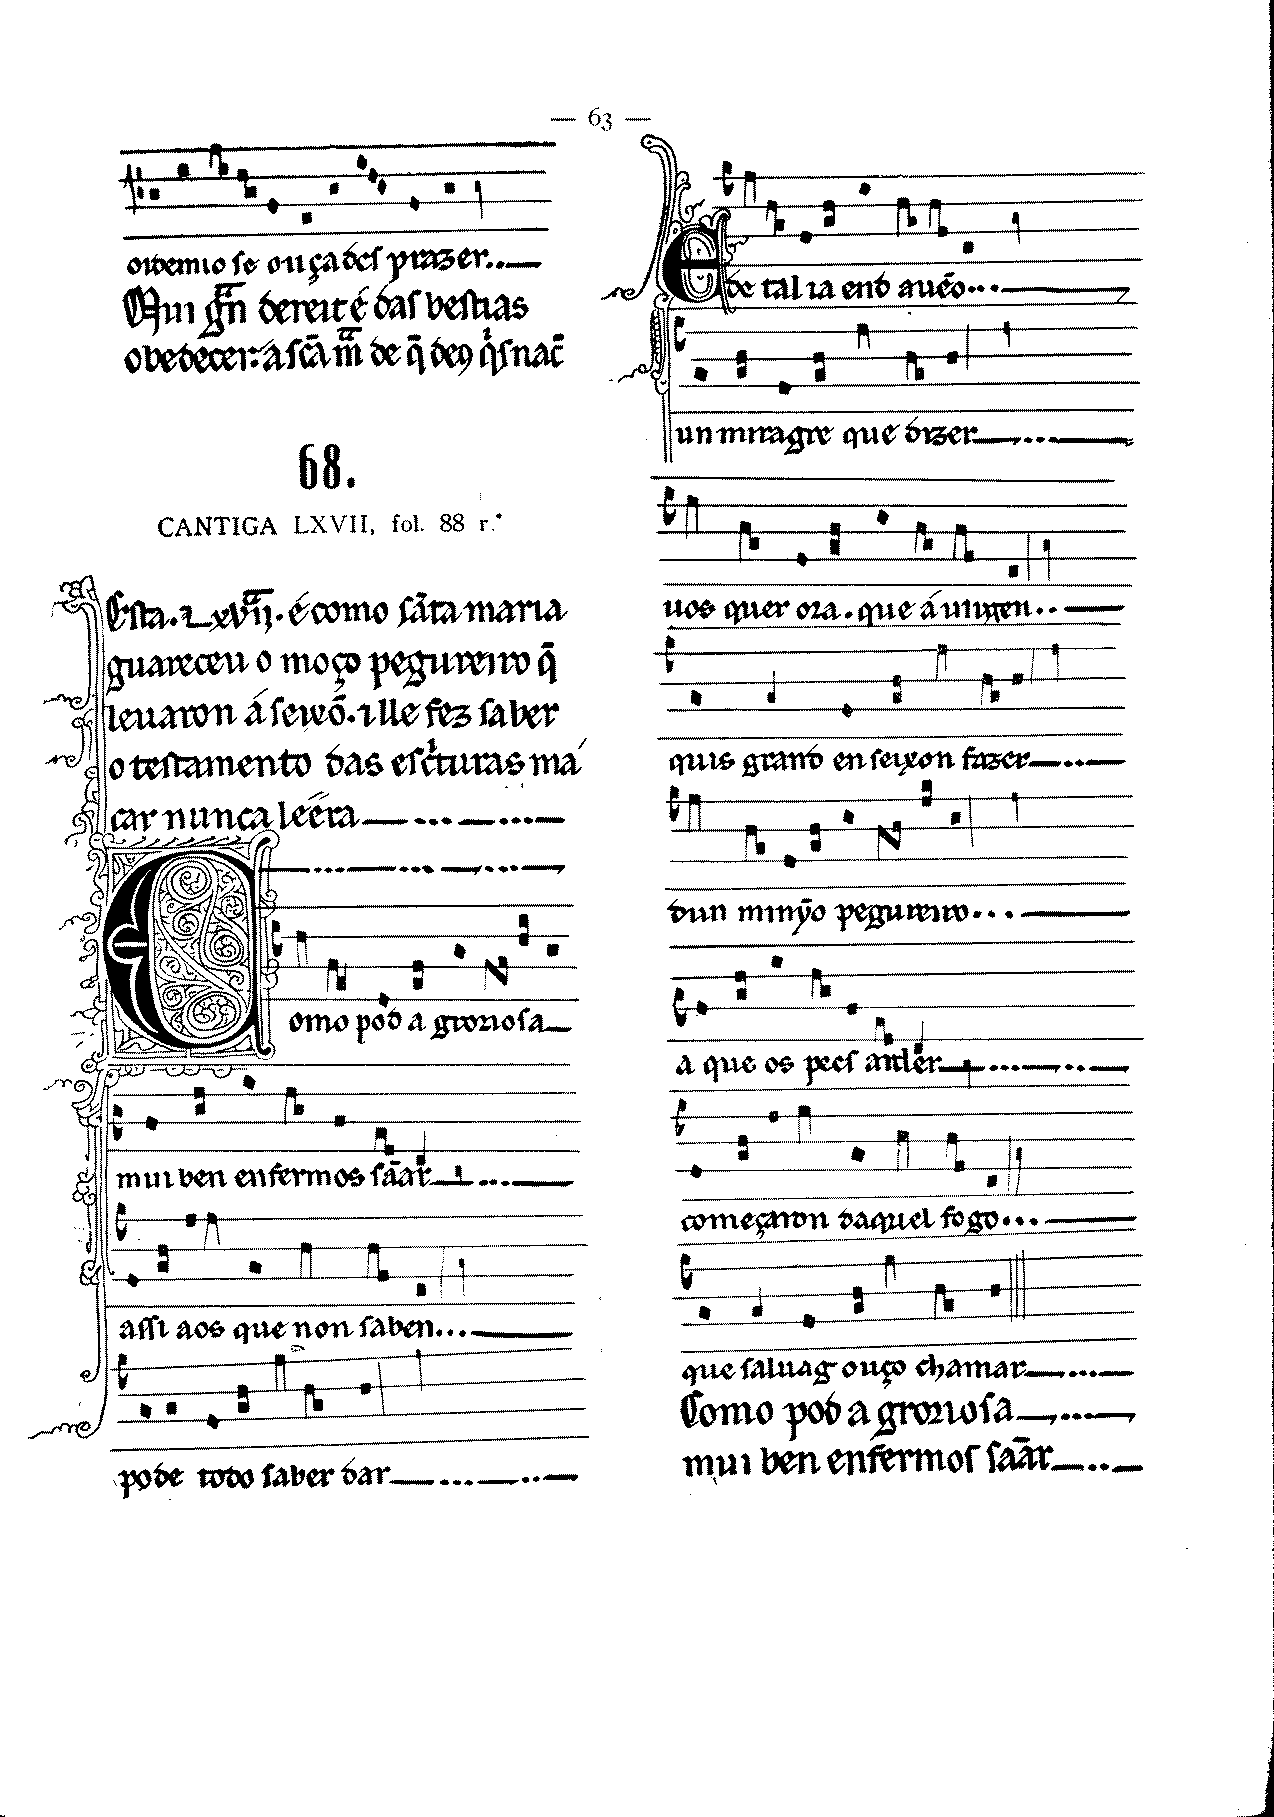 — 63 —
oidemio se ouçades prazer
Mui gr̃an dereit é das bestias
obedecer: a sc̃a mr̃a de q̃ deꝯ qⁱs nac̃
68.
CANTIGA LXVII, fol. 88 r.°
Esta é como sãta maria
guareceu o moço pegureiro q̃
leuaron á seixõ. ille fez saber
o testamento das esc̃turas má
car nunca leera
Como pod a groriosa
mui ben enfermos sãar
assi aos que non saben
pode todo saber dar
E de tal ia end auẽo
un miragre que dizer
uos quer ora. que á uirgen
quis grand en seixon fazer
dun minỹo pegureiro
a que os pees arder
começaron daquel fogo
que saluag ouço chamar
Como pod a groriosa
mui ben enfermos saãr